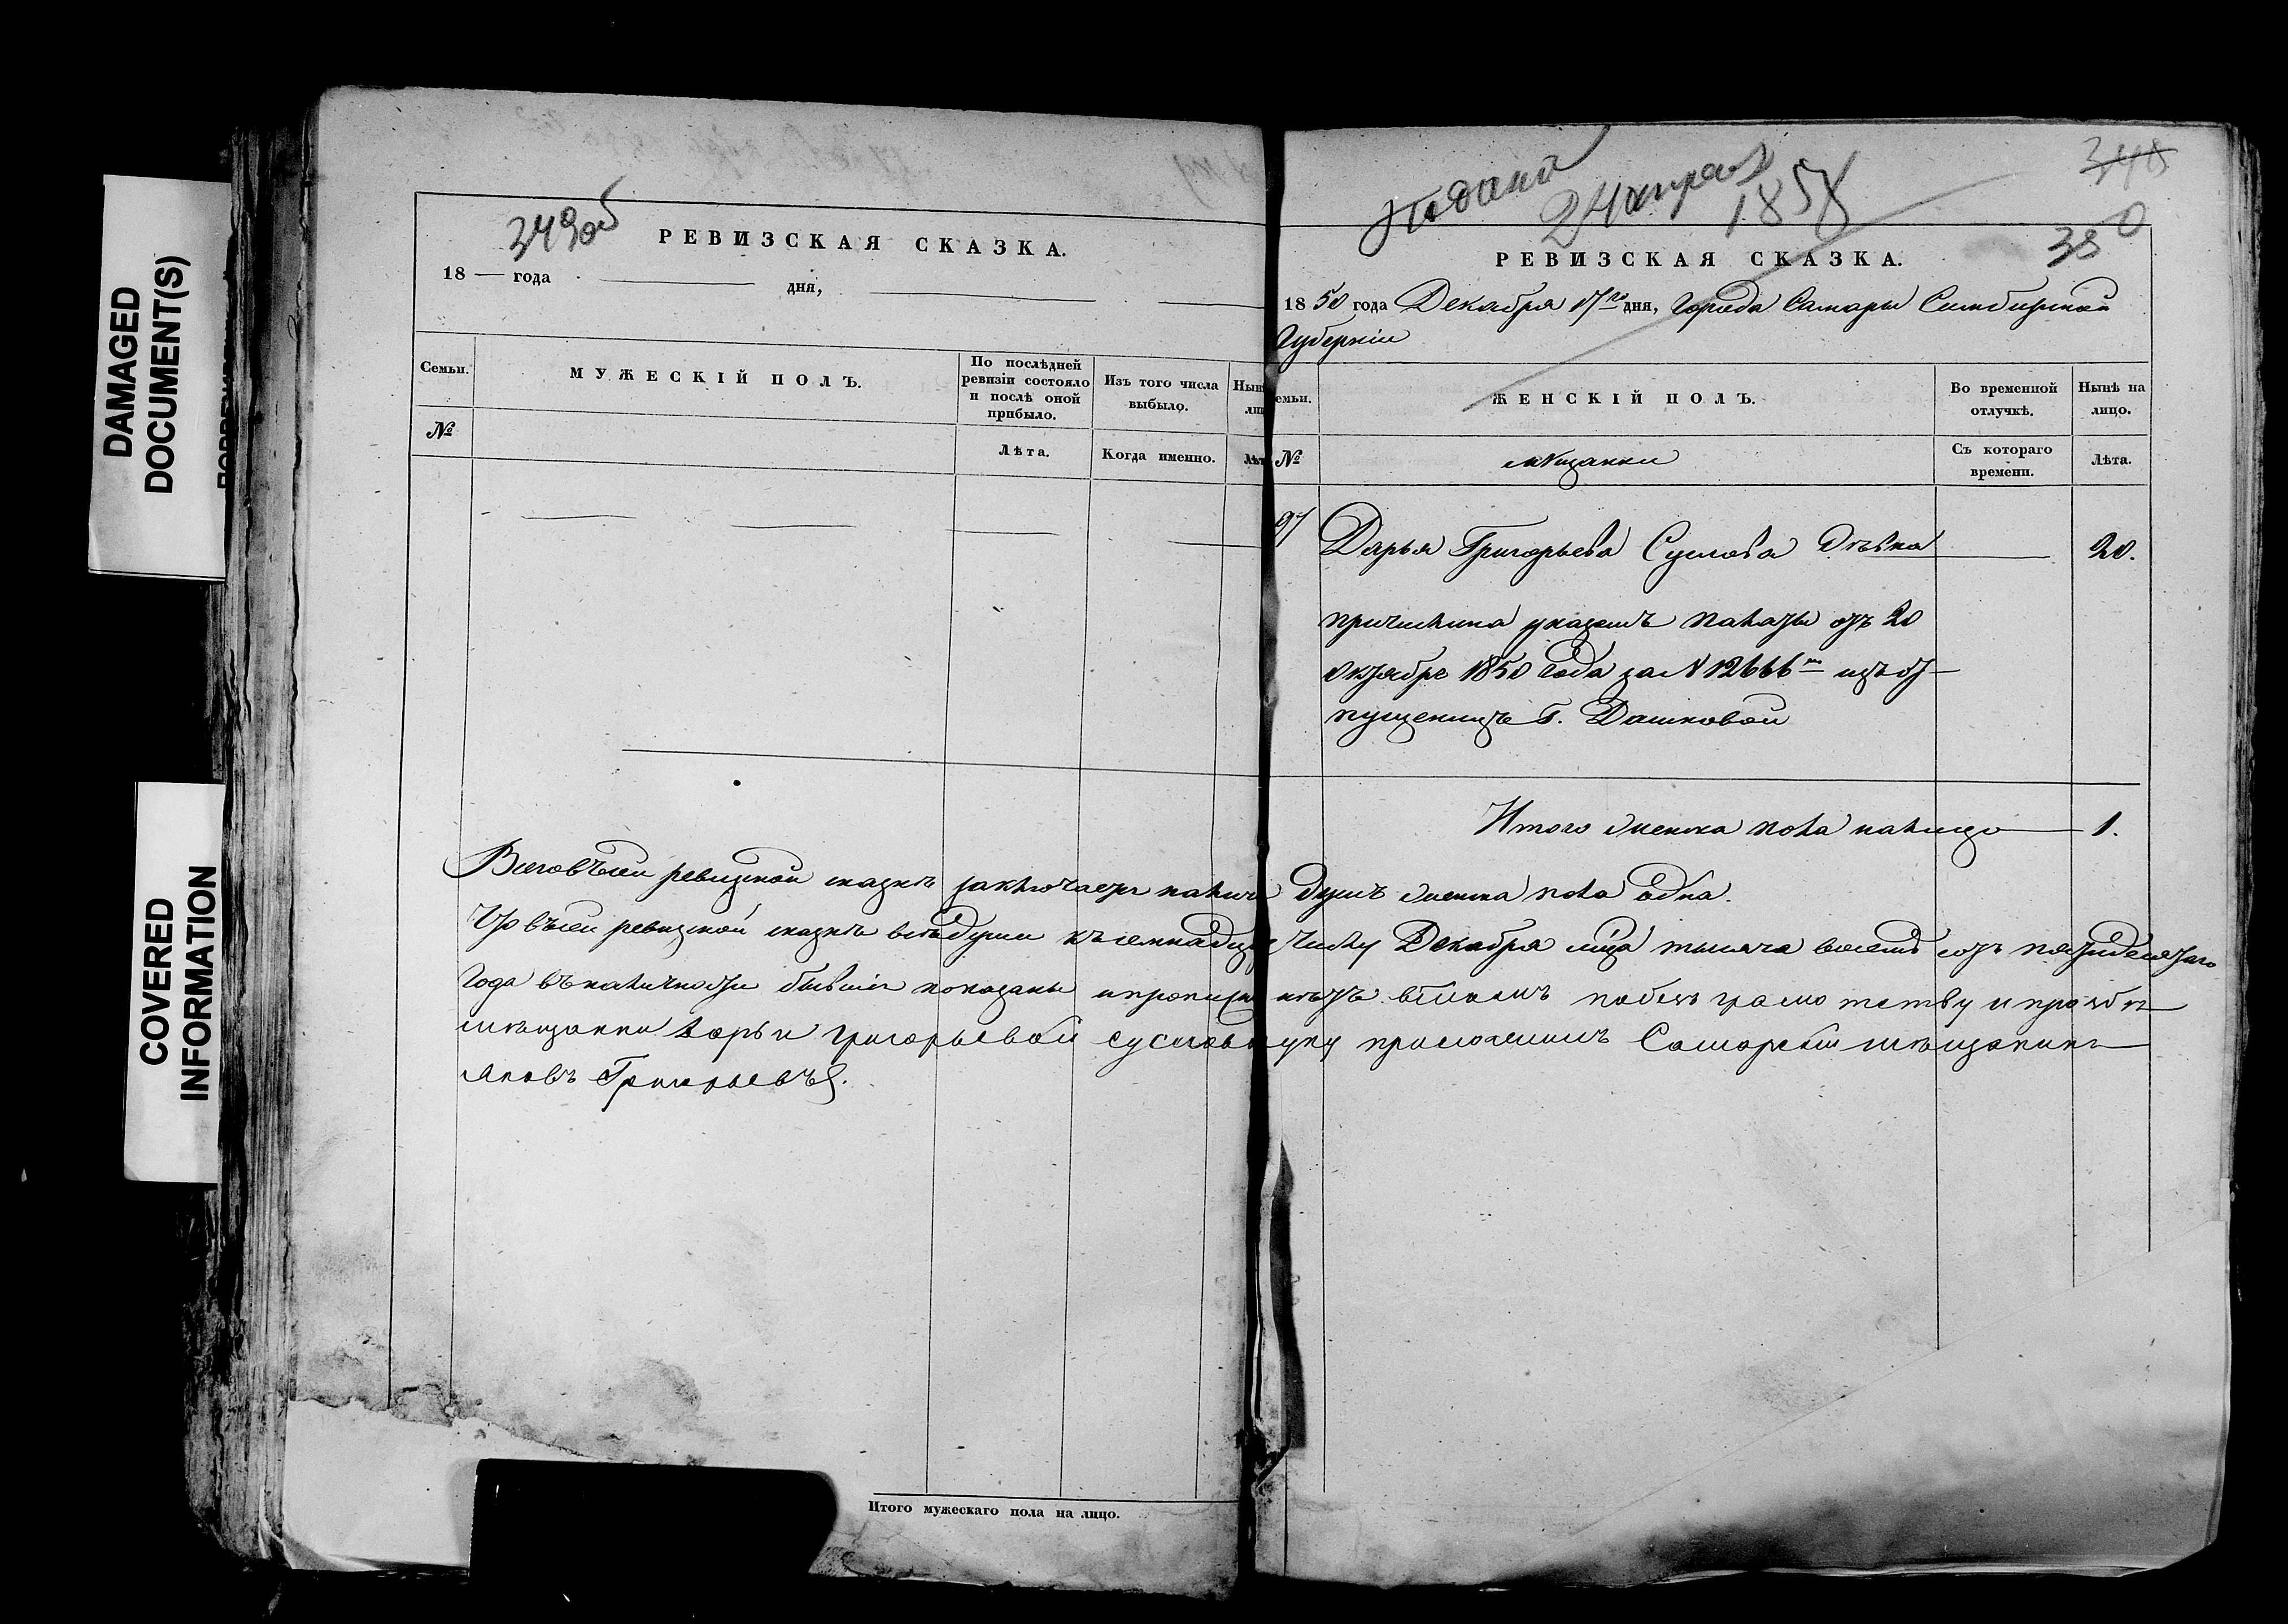 DAMAGED
DOCUMENT(S)
COVERED
INFORMATION
349об
РЕВИЗСКАЯ СКАЗКА.
18 — года дня,
Семьи.
МУЖЕСКІЙ ПОЛЪ.
По послѣдней
ревизіи состояло
и послѣ оной
прибыло.
Изъ того числа
выбыло.
№
Лѣта.
Когда именно.
Подана
24 апреля
1858
348
350
РЕВИЗСКАЯ СКАЗКА.
1850 года Декабря 17го дня, Города Самары Симбирской
Губерніи
ЖЕНСКІЙ ПОЛЪ.
Во временной
отлучкѣ.
Нынѣ на
лицо.
№
мѣщанки
Съ котораго
времени.
Лѣта.
97
Дарья Григорьева Суслова дѣвка — 20.
причислена указомъ палаты отъ 20
октября 1850 года за № 12666мъ изъ от-
пущеницъ Г. Дашковой
Итого женска пола налицо — 1.
Всего въ сей ревизской сказкѣ заключается налицо душъ женска пола одна.
Что въ сей ревизской сказкѣ всѣ души къ семнадцат числу Декабря мца тысяча восемь сотъ пятидесятаго
года въ наличности бывшія показаны и прописныхъ нѣтъ въ томъ по безграмотству и прозбѣ
мѣщанки Дарьи Григорьевой Сусловой руку приложилъ Самарской мѣщанинъ
Яковъ Григорьевъ.
Итого мужескаго пола на лицо.